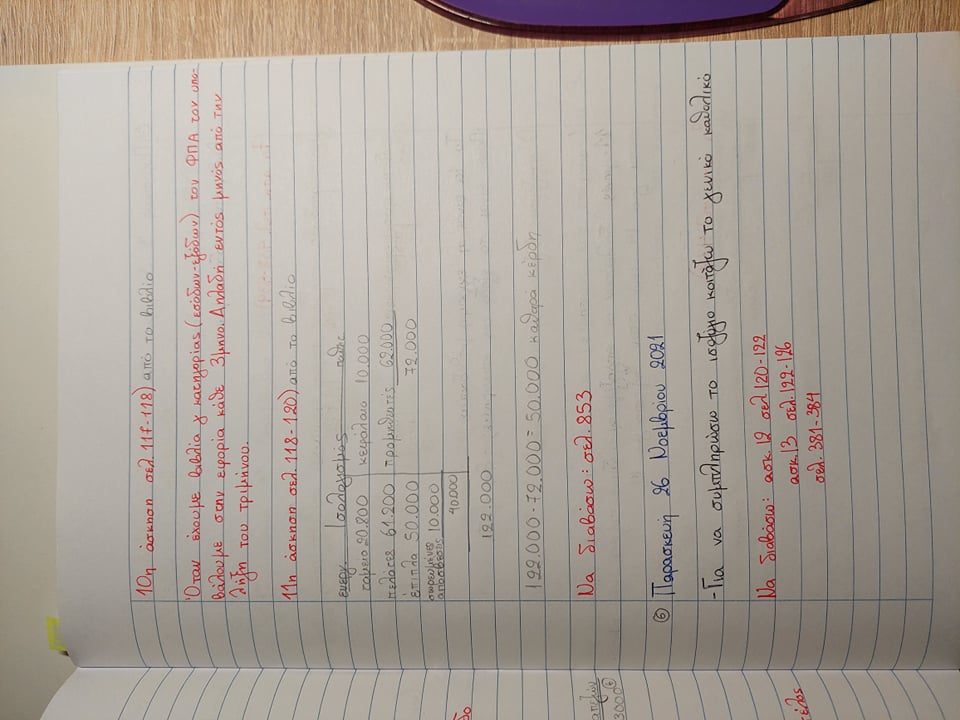 10η άσκηση σελ. 117-118) από το βιβλίο
Όταν έχουμε βιβλία γ κατηγορίας (εσόδων-εξόδων) τον ΦΠΑ τον υπο-
βάλουμε στην εφορία κάθε 3μηνο. Δηλαδή εντός μηνός από την
λήξη του τριμήνου.
11η άσκηση σελ. 118-120) από το βιβλίο
ενεργ. Ισολογισμός παθητ.
ταμείο 20.800 κεφάλαιο 10.000
πελάτες 61.200 προμηθευτές 62.000
έπιπλα 50.000 72.000
σωρευμένες
αποσβέσεις 10.000
40.000
122.000
122.000-72.000= 50.000 καθαρά κέρδη
Να διαβάσω: σελ. 853
3000 6
6 Παρασκευή 26 Νοεμβρίου 2021
-Για να συμπληρώσω το ισοζύγιο κοιτάζω το γενικό καθολικό
Να διαβάσω: ασκ. 12 σελ 120-122
ασκ. 13 σελ. 122-126
σελ. 381-384